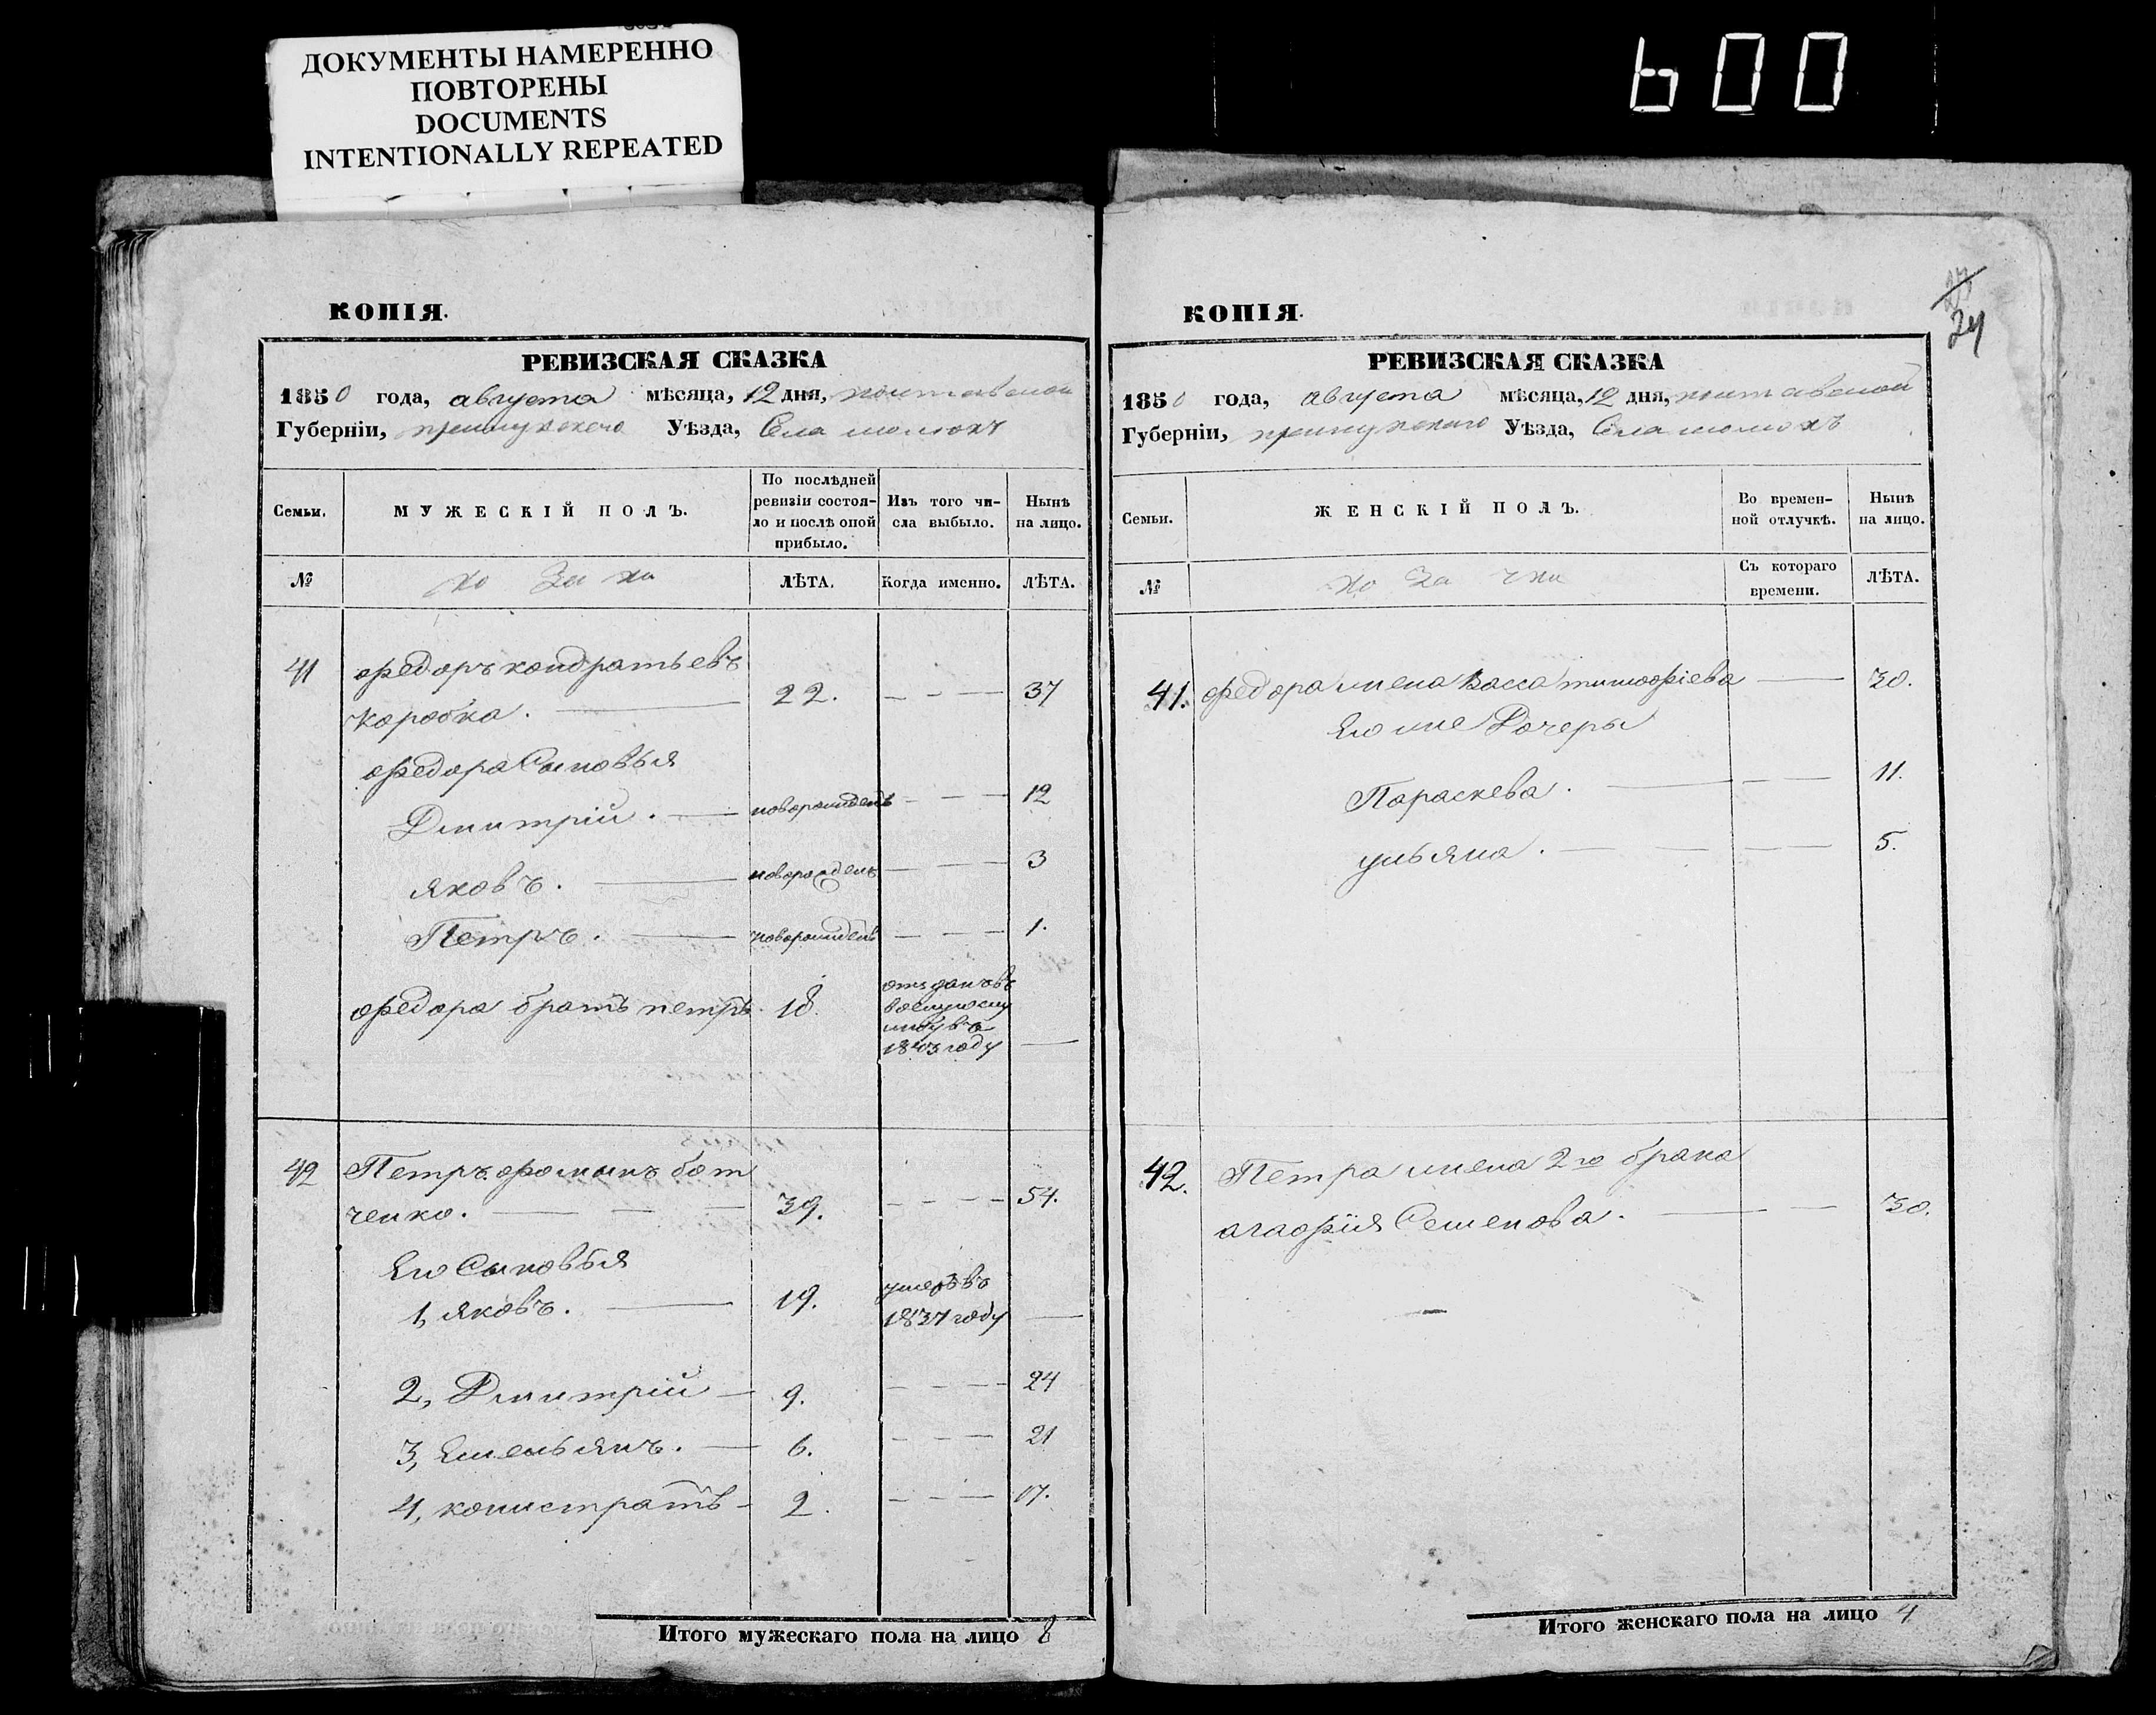 ДОКУМЕНТЫ НАМЕРЕННО
ПОВТОРЕНЫ
DOCUMENTS
INTENTIONALLY REPEATED
600
КОПІЯ.
РЕВИЗСКАЯ СКАЗКА
1850 года, августа мѣсяца, 12 дня, полтавской
Губерніи, прилукского Уѣзда, Села
Семьи.
МУЖЕСКІЙ ПОЛЪ.
По послѣдней
ревизіи состоя-
ло и послѣ оной
прибыло.
Изъ того чи-
сла выбыло.
Нынѣ
на лицо.
№
ко за ки
ЛѢТА.
Когда именно.
ЛѢТА.
41 федоръ кондратьевъ
коробка. 22. 37
федора Сыновья
Дмитрій. новорожденъ 12
яковъ. новорожденъ 3
Петръ. новорожденъ 1.
федора братъ петръ. 18.
отданъ въ
1843 году
42 Петръ фоминъ бот
ченко. 39. 54.
Его Сыновья
1, яковъ. 19. умеръ въ
1837 году
2, Дмитрій 9. 24
3, Емельянъ. 6. 21
4, конистратъ 2. 17.
Итого мужескаго пола на лицо 8
24
КОПІЯ.
РЕВИЗСКАЯ СКАЗКА
1850 года, августа мѣсяца, 12 дня, полтавской
Губерніи, прилукского Уѣзда, Села
Семьи.
ЖЕНСКІЙ ПОЛЪ.
Во времен-
ной отлучкѣ.
Нынѣ
на лицо.
№
ко за чки
Съ котораго
времени.
ЛѢТА.
41. федора жена Васса тимофіева 30.
Его же Дочеры
Параскева. 11.
ульяна. 5.
42. Петра жена 2го брака
агафія Семенова. 30.
Итого женскаго пола на лицо 4